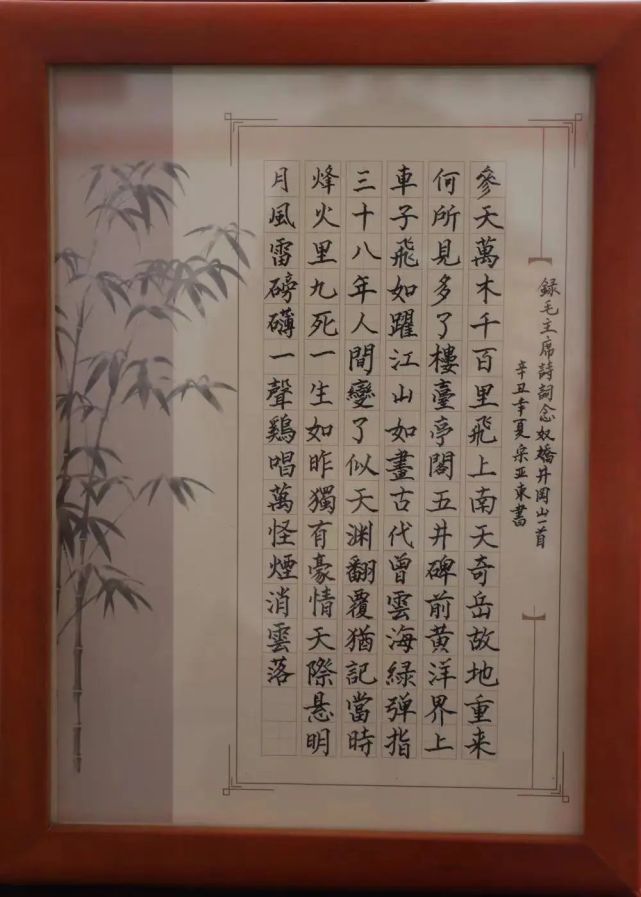 録毛主席詩詞念奴橋井岡山一首
辛丑年夏宋亚東書
參天萬木千百里飛上南天奇岳故地重来
何所見多了樓臺亭閣五井碑前黄洋界上
車子飛如躍江山如畫古代曾雲海緑弹指
三十八年人間變了似天渊翻覆猶記當時
烽火里九死一生如昨獨有豪情天際悬明
月風雷磅礴一聲鷄唱萬怪煙消雲落